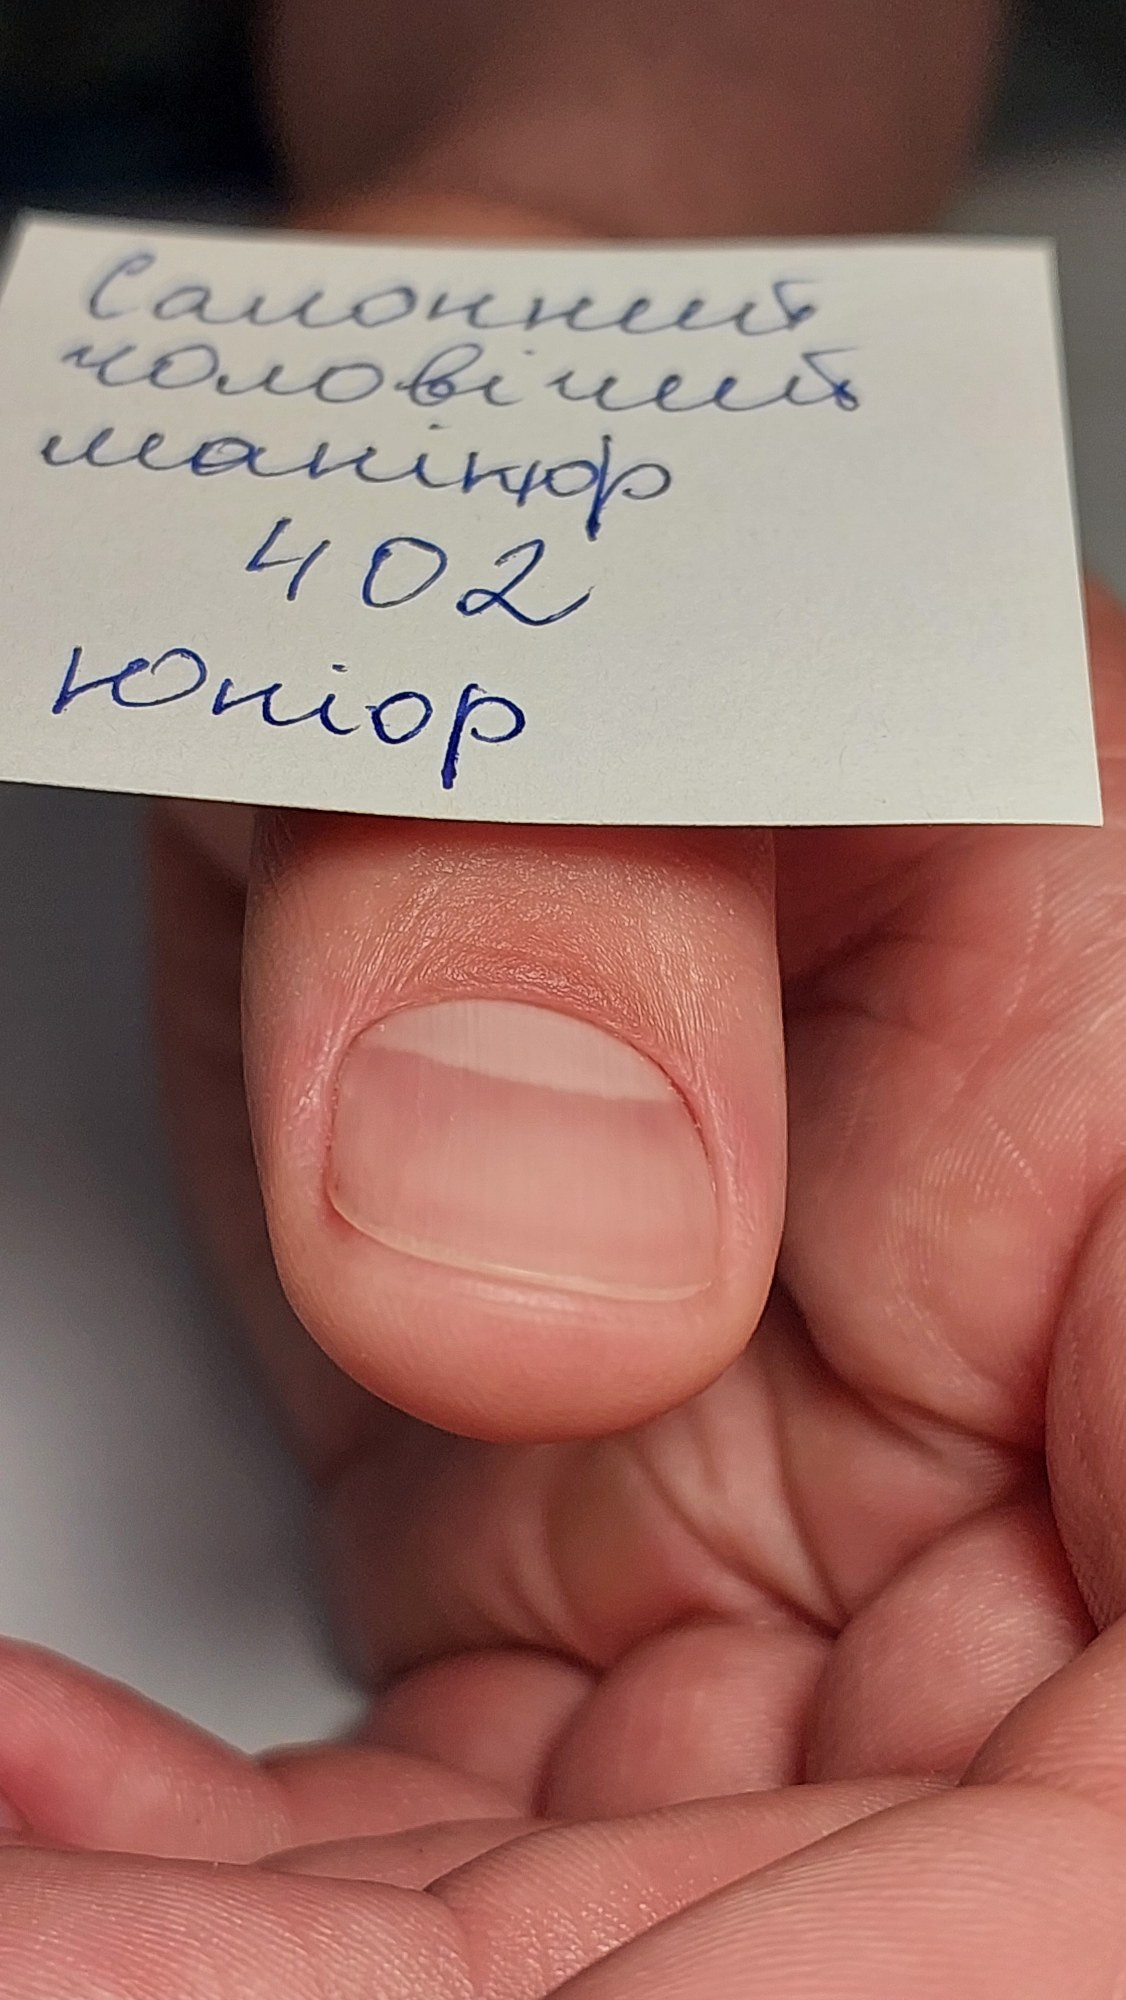 Салонний
чоловічий
манікюр
402
Юніор